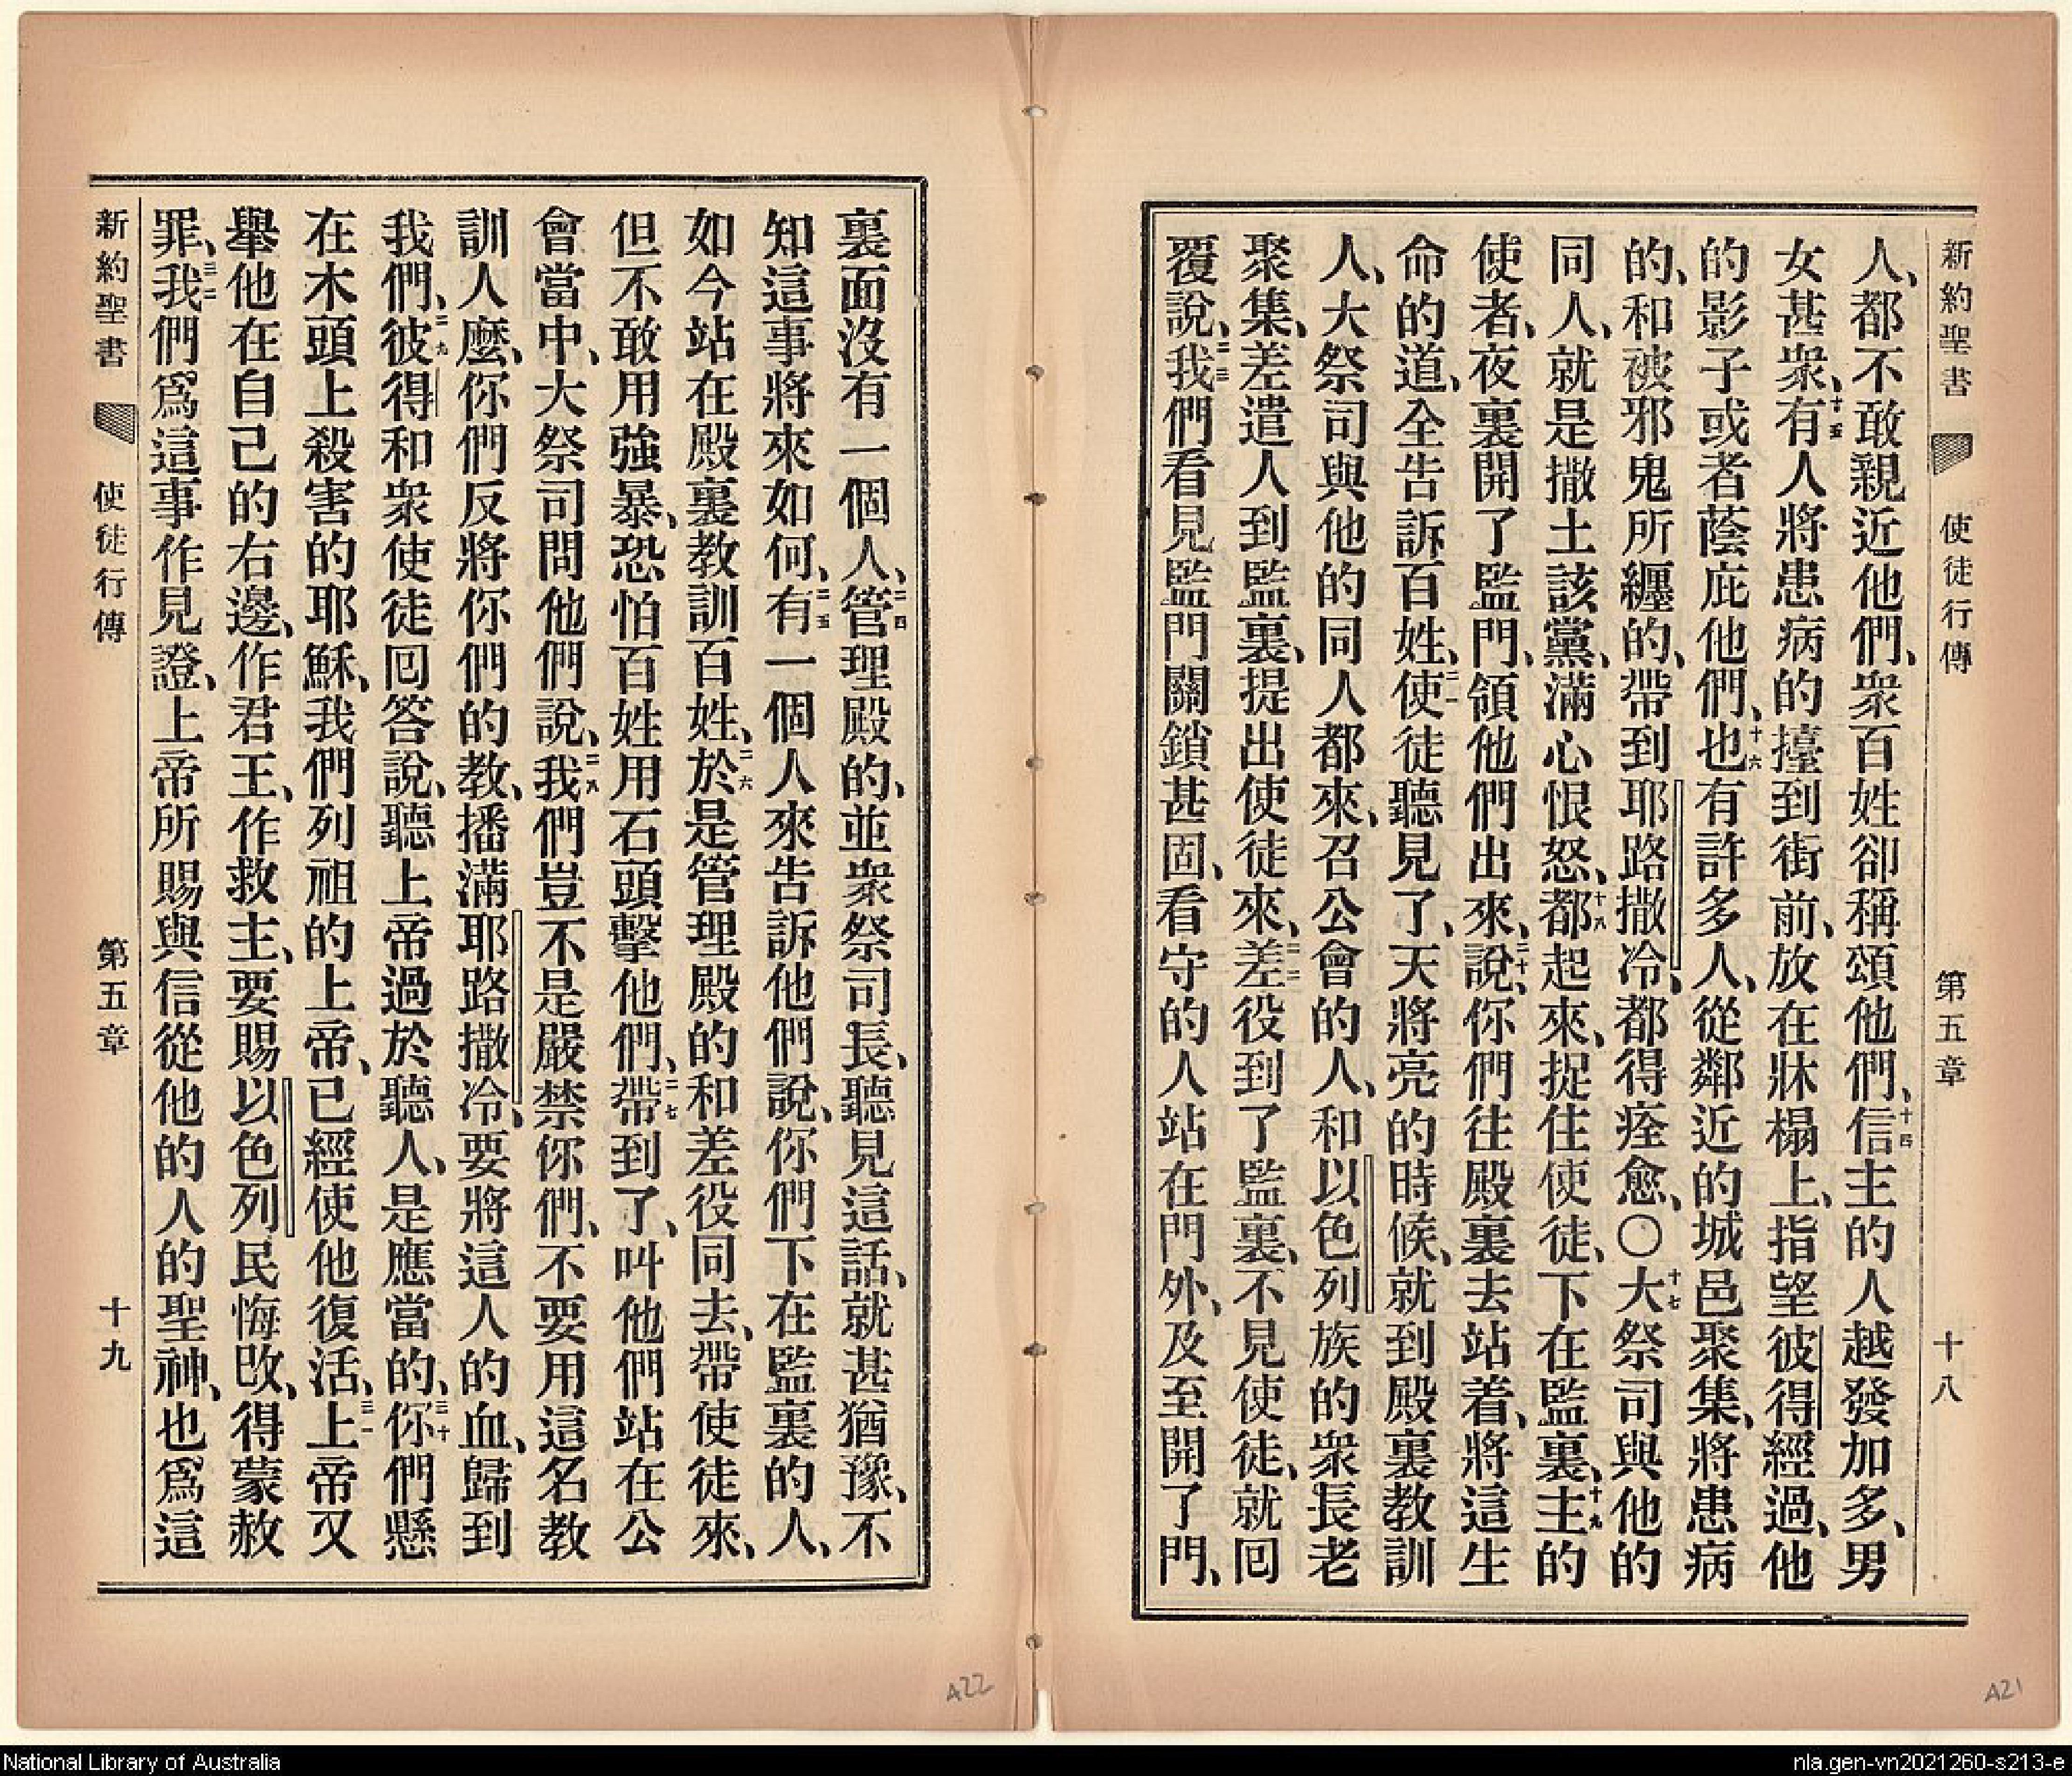 新約聖書 使徒行傳 第五章 十八
人、都不敢親近他們、衆百姓卻稱頌他們、十四信主的人越發加多、男
女甚衆、十五有人將患病的擡到街前、放在牀榻上、指望彼得經過、他
的影子或者蔭庇他們、十六也有許多人、從鄰近的城邑聚集、將患病
的、和被邪鬼所纏的、帶到耶路撒冷、都得痊愈、〇十七大祭司與他的
同人、就是撒土該黨、滿心恨怒、十八都起來、捉住使徒、下在監裏、十九主的
使者、夜裏開了監門、領他們出來、二十說、你們往殿裏去站着、將這生
命的道、全告訴百姓、二一使徒聽見了、天將亮的時候、就到殿裏教訓
人、大祭司與他的同人都來、召公會的人、和以色列族的衆長老
聚集、差遣人到監裏、提出使徒來、二二差役到了監裏、不見使徒、就囘
覆說、二三我們看見監門關鎖甚固、看守的人站在門外、及至開了門、
裏面沒有一個人、二四管理殿的、並衆祭司長、聽見這話、就甚猶豫、不
知這事將來如何、二五有一個人來告訴他們說、你們下在監裏的人、
如今站在殿裏教訓百姓、二六於是管理殿的和差役同去、帶使徒來、
但不敢用強暴、恐怕百姓用石頭擊他們、二七帶到了、叫他們站在公
會當中、大祭司問他們說、二八我們豈不是嚴禁你們、不要用這名教
訓人麼、你們反將你們的教、播滿耶路撒冷、要將這人的血、歸到
我們、二九彼得和衆使徒囘答說、聽上帝過於聽人、是應當的、三十你們懸
在木頭上殺害的耶穌、我們列祖的上帝、已經使他復活、三一上帝又
舉他在自己的右邊、作君王、作救主、要賜以色列民悔改、得蒙赦
罪、三二我們爲這事作見證、上帝所賜與信從他的人的聖神、也爲這
新約聖書 使徒行傳 第五章 十九
A22
A21
National Library of Australia
nla.gen-vn2021260-s213-e